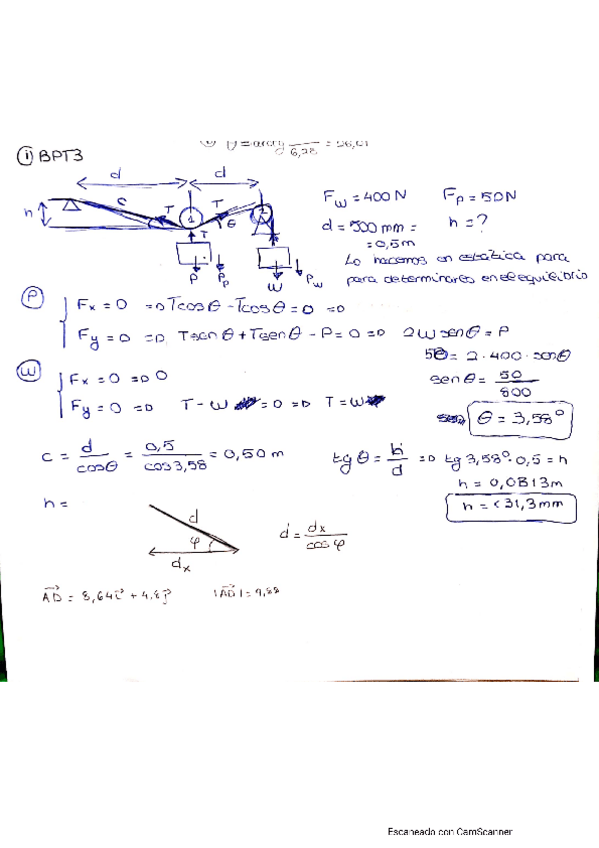 6,28
① BPT3
d d
h c T T θ
1 2
T
P Pp W Pw
Fw = 400 N Fp = 50N
d = 500 mm = h = ?
= 0,5m
Lo hacemos en estática para
para determinares en el equilibrio
Ⓟ Fx = 0 =D Tcosθ - Tcosθ = 0 =D
Fy = 0 =D Tsenθ + Tsenθ - P = 0 =D 2Wsenθ = P
50 = 2·400·senθ
Ⓦ Fx = 0 =D 0
senθ = 50/800
Fy = 0 =D T - W = 0 =D T = W
θ = 3,58º
c = d/cosθ = 0,5/cos3,58 = 0,50 m
tgθ = h/d =D tg 3,58º·0,5 = h
h = 0,0313m
h = <31,3mm
h =
d
φ
dx
d = dx/cosφ
AD = 8,64i + 4,8j |AD| = 9,88
Escaneado con CamScanner